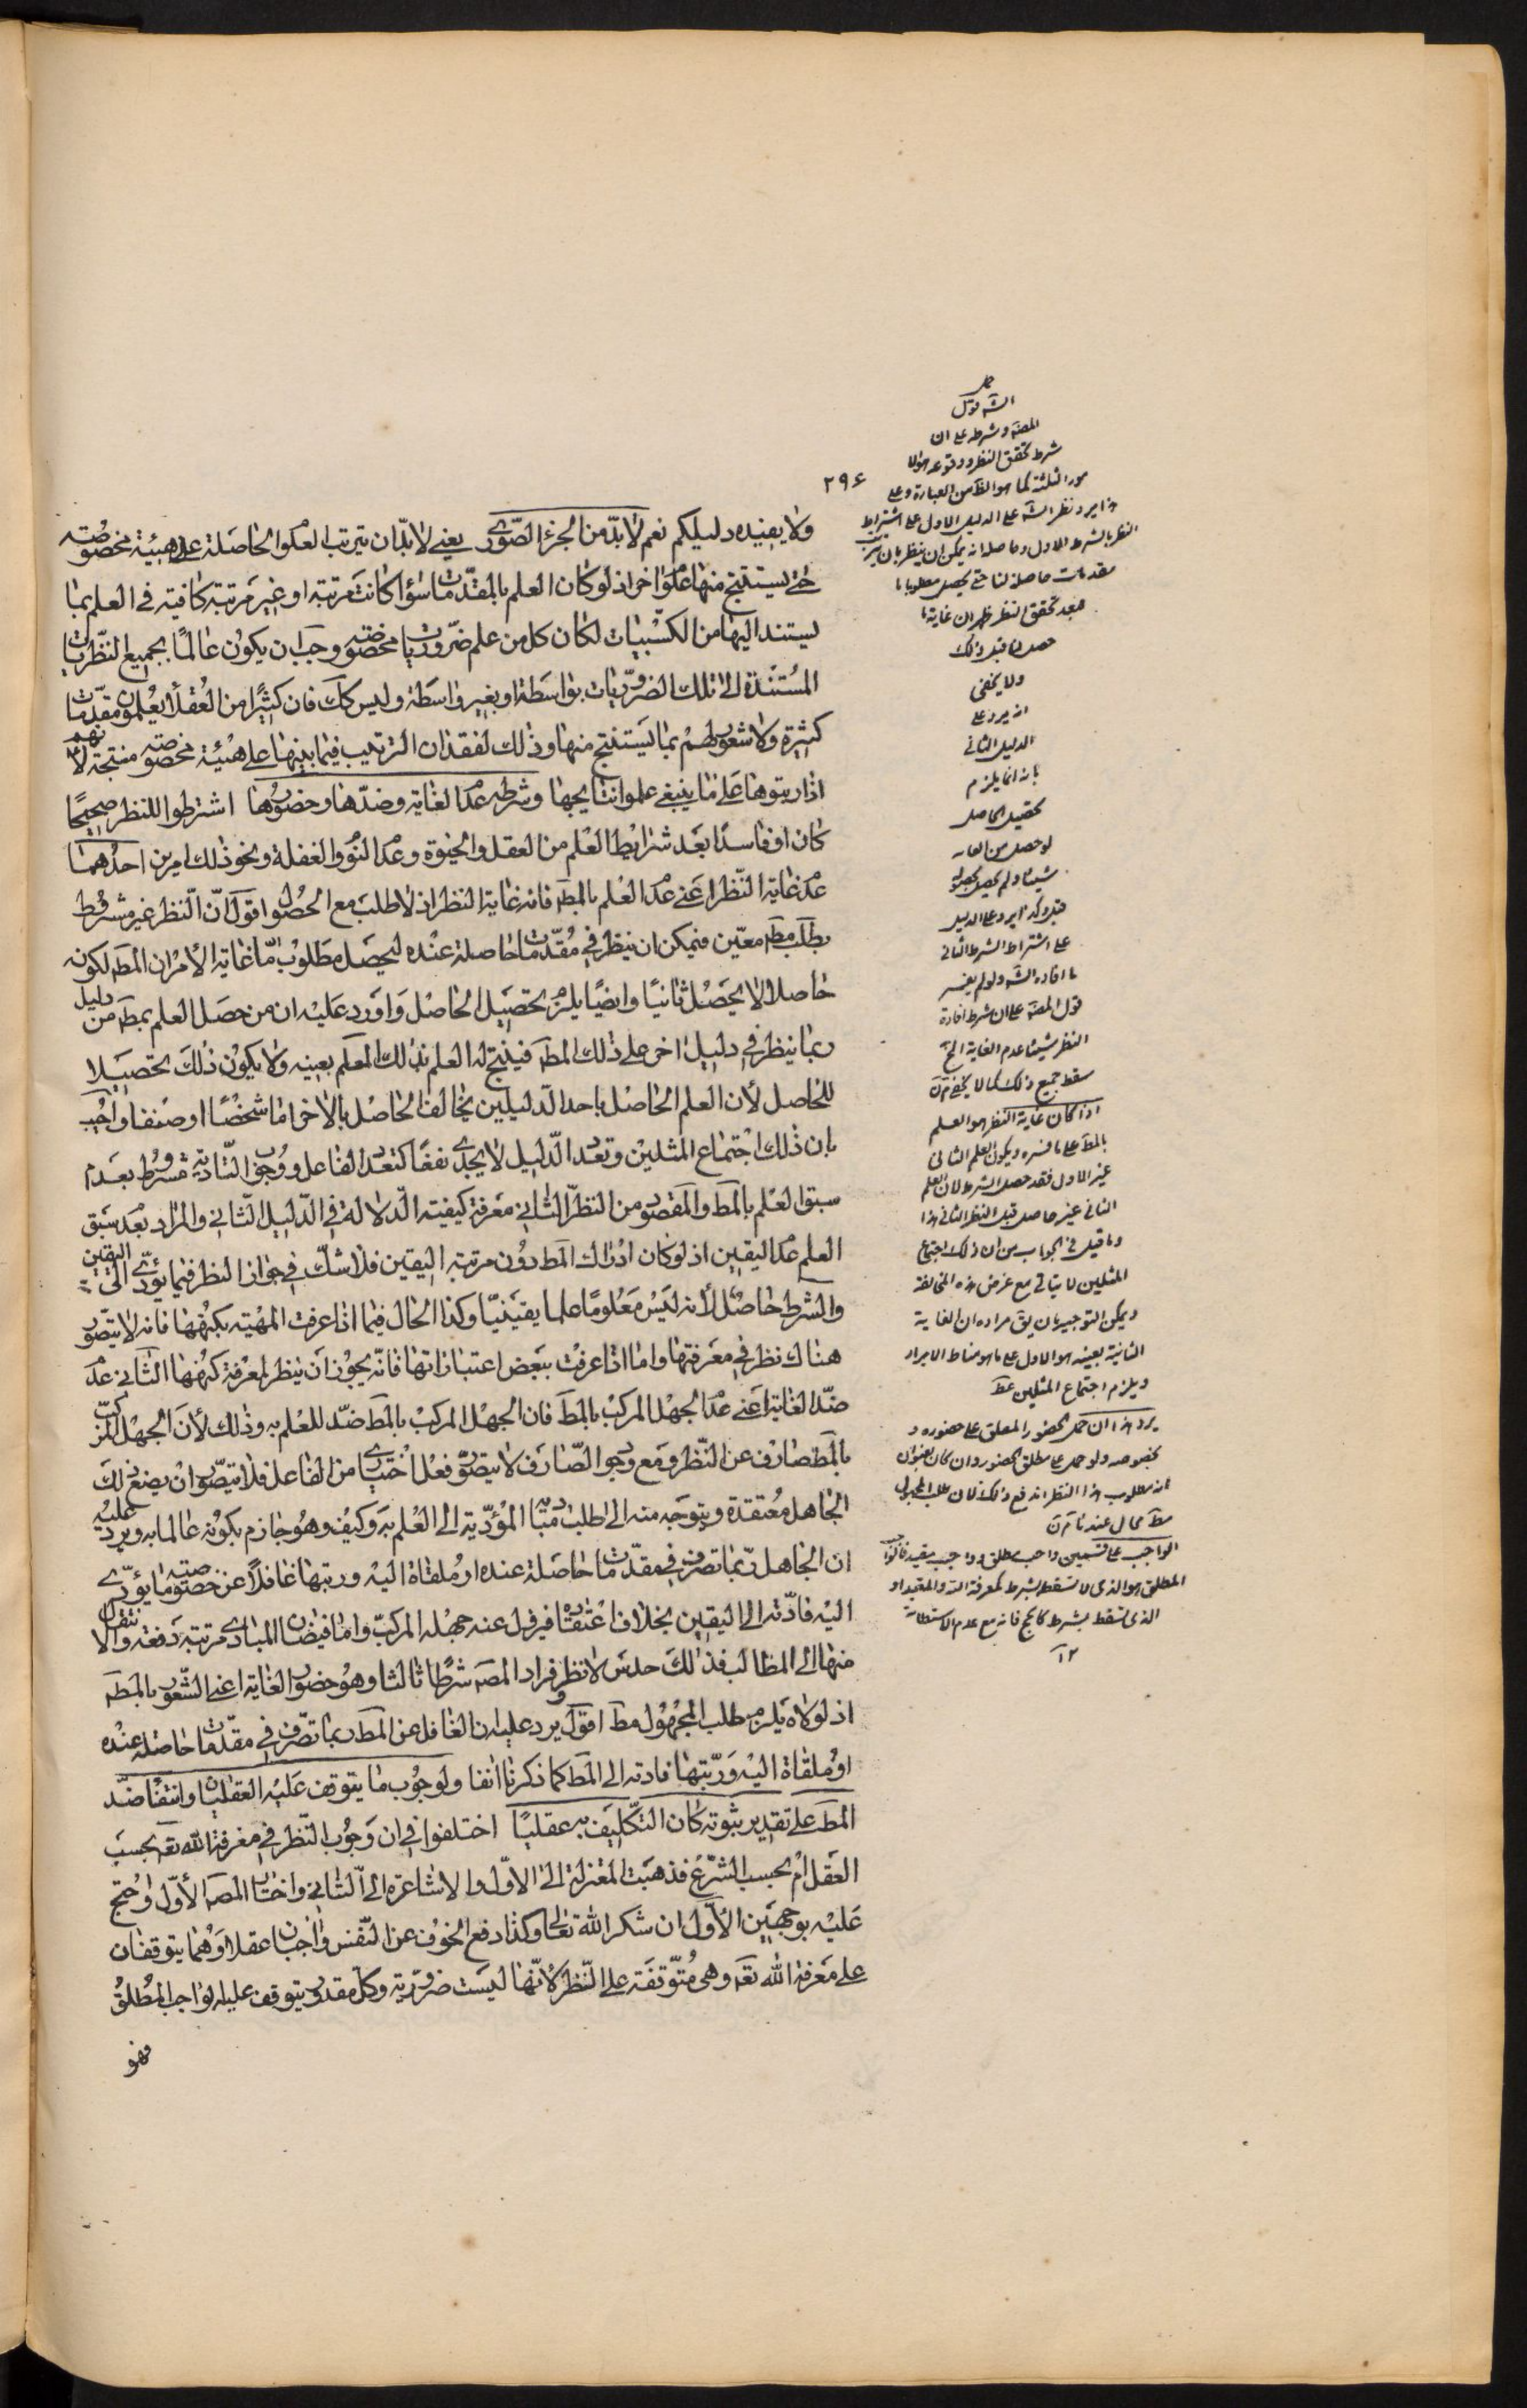 ٢٩٤
ولا يفيده دليلكم نعم لا بد من الجزء الصوري يعني لا بد ان يترتب العلوم الحاصلة على هيئة مخصوصة
حتى يستنتج منها علوم اخر اذ لو كان العلم بالمقدمات سواء كانت مرتبة او غير مرتبة كافية في العلم بما
يستند اليها من الكسبيات لكان كل من علم ضروريات مخصوصة وجب ان يكون عالما بجميع النظريات
المستندة الى تلك الضروريات بواسطة او بغير واسطة وليس كك فان كثيرا من العقلاء يعلمون مقدمات
كثيرة ولا شعور لهم بما يستنتج منها وذلك لفقدان الترتيب فيما بينها على هيئة مخصوصة منتجة لانهم
اذا رتبوها على ما ينبغي علموا نتايجها وشرطه عدم الغاية وضدها وحضورها اشترطوا للنظر صحيحا
كان او فاسدا بعد شرايط العلم من العقل والحيوة وعدم النوم والغفلة ونحو ذلك امرين احدهما
عدم غاية النظر اعني عدم العلم بالمط فانه غاية النظر اذ لا طلب مع الحصول اقول ان النظر غير مشروط
بطلب مط معين فيمكن ان ينظر في مقدمات حاصلة عنده ليحصل مطلوب ما غاية الامر ان المط لكونه
حاصلا لا يحصل ثانيا وايضا يلزم تحصيل الحاصل واورد عليه ان من حصل العلم بمط من دليل
ربما ينظر في دليل اخر على ذلك المط فينتج له العلم بذلك المعلم بعينه ولا يكون ذلك تحصيلا
للحاصل لان العلم الحاصل باحد الدليلين يخالف الحاصل بالاخر اما شخصا او صنفا واجيب
بان ذلك اجتماع المثلين وتعدد الدليل لا يجدي نفعا كتعدد الفاعل ووجوب التادية مشروط بعدم
سبق العلم بالمط والمقصود من النظر الثاني معرفة كيفية الدلالة في الدليل الثاني والمراد بعدم سبق
العلم عدم اليقين اذ لو كان ادراك المط دون مرتبة اليقين فلا شك في جواز النظر فيما يؤدي الى اليقين
والشرط حاصل لانه ليس معلوما علما يقينيا وكذا الحال فيما اذا عرفت المهية بكنهها فانه لا يتصور
هناك نظر في معرفتها واما اذا عرفت ببعض اعتباراتها فانه يجوز ان ينظر لمعرفة كنهها الثاني عدم
ضد الغاية اعني عدم الجهل المركب بالمط فان الجهل المركب بالمط ضد للعلم به وذلك لان الجهل المركب
بالمط صارف عن النظر ومع وجود الصارف لا يتصور فعل اختياري من الفاعل فلا يتصور ان يضع ذلك
الجاهل معتقده ويتوجه منه الى طلب مباديه المؤدية الى العلم به وكيف وهو جازم بكونه عالما به ويرد عليه
ان الجاهل ربما تصرف في مقدمات حاصلة عنده او ملقاة اليه ورتبها غافلا عن خصوصية ما يؤدي
اليه فادته الى اليقين بخلاف اعتقاده فيزول عنه جهله المركب واما فيضان المبادي مرتبة دفعة والانتقال
منها الى المطالب فذلك حدس لا نظر وزاد المصه شرطا ثالثا وهو حضور الغاية اعني الشعور بالمط
اذ لولاه يلزم طلب المجهول مط اقول يرد عليه ان الغافل عن المط ربما تصرف في مقدمات حاصلة عنده
او ملقاة اليه ورتبها فادته الى المط كما ذكرنا انفا ولوجوب ما يتوقف عليه العقليان وانتفاء ضد
المط على تقدير ثبوته كان التكليف به عقليا اختلفوا في ان وجوب النظر في معرفة الله تعه بحسب
العقل ام بحسب الشرع فذهبت المعتزلة الى الاول والاشاعرة الى الثاني واختار المصه الاول واحتج
عليه بوجهين الاول ان شكر الله تعالى وكذا دفع الخوف عن النفس واجبان عقلا وهما يتوقفان
على معرفة الله تعه وهي متوقفة على النظر لانها ليست ضرورية وكل مقدور يتوقف عليه الواجب المطلق
فهو
الشه قول
المصه وشرطه على ان
شرط تحقق النظر ووقوعه هو الا
مور الثلثة كما هو الظ من العبارة وعلى
هذا يرد نظر الشه على الدليل الاول على اشتراط
النظر بالشرط الاول وحاصله انه يمكن ان ينظر بان يترتب
مقدمات حاصلة لنا حتى يحصل مطلوبا ما
فبعد تحقق النظر ظهر ان غاية ما
حصل لنا قبل ذلك
ولا يخفى
انه يرد على
الدليل الثاني
بانه انما يلزم
تحصيل الحاصل
لو حصل من العلم
شيئا ولم يحصل بحصوله
قبل وكذا يرد على الدليل
على اشتراط الشرط الثاني
ما افاده الشه ولو لم يفسر
قول المصه على ان شرط افادة
النظر شيئا عدم الغاية الخ
سقط جميع ذلك كما لا يخفى م ن
اذا كان غاية النظر هو العلم
بالمط على ما فسره ويكون العلم الثاني
غير الاول فقد حصل الشرط لان العلم
الثاني غير حاصل قبل النظر الثاني هذا
وما قيل في الجواب من ان ذلك اجتماع
المثلين لا يتاتى مع عرض هذه المخالفة
ويمكن التوجيه بان يق مراده ان الغاية
الثانية بعينه هو الاول على ما هو مناط الايراد
ويلزم اجتماع المثلين عط
يرد هذا ان حمل الحضور المعلق على حضوره
بخصوصه ولو حمل على مطلق الحضور وان كان بعنوان
انه مطلوب هذا النظر اندفع ذلك لان طلب المجهول
مط محال عندنا م ن
الواجب على قسمين واجب مطلق وواجب مقيد فالواجب
المطلق هو الذي لا تسقط بشرط كمعرفة الله والمقيد هو
الذي تسقط بشرط كالحج فانه مع عدم الاستطاعة